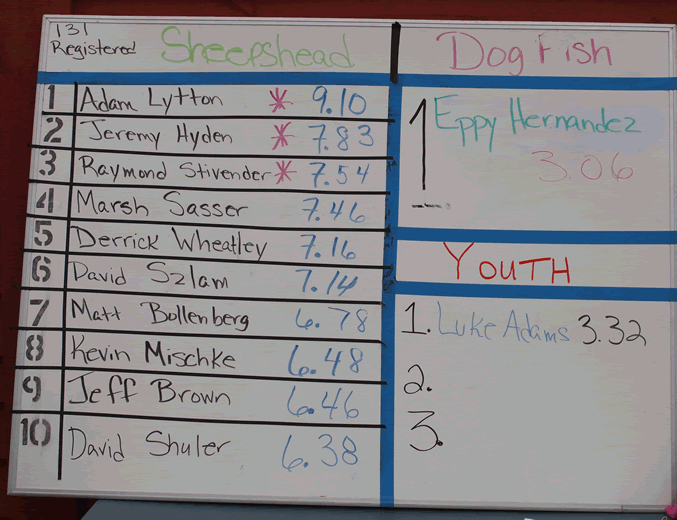 131
Registered
Sheepshead
1 Adam Lytton * 9.10
2 Jeremy Hyden * 7.83
3 Raymond Stivender * 7.54
4 Marsh Sasser 7.46
5 Derrick Wheatley 7.16
6 David Szlam 7.14
7 Matt Bollenberg 6.78
8 Kevin Mischke 6.48
9 Jeff Brown 6.46
10 David Shuler 6.38
Dog Fish
1 Eppy Hernandez
3.06
YOUTH
1. Luke Adams 3.32
2.
3.